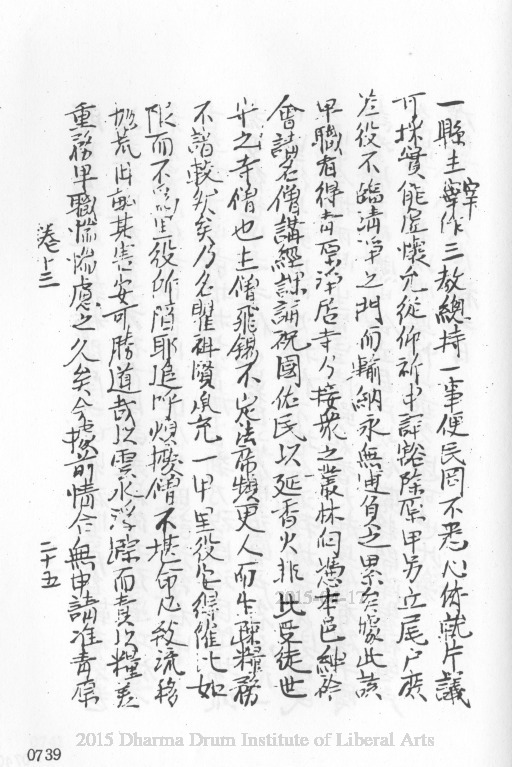 一縣主宰作三教總持一事便民罔不悉心俯就片議
可採實能虛懷允從仰祈申詳豁除原甲另立尾戶庶
差役不臨清淨之門而輸納永無逋負之累矣據此該
卑職看得青原淨居寺乃接眾之叢林向憑本邑紳衿
會請名僧講經課誦祝國佑民以延香火非比受徒世
業之寺僧也主僧飛錫不定法席頻更人而生疎糧務
不諳較矣乃名瞿祖賢風充一甲里役安得催比如
限而不為里役所陷耶追呼煩擾僧不堪命凡致流移
拋荒田畝其害安可勝道哉以雲水浮蹤而責以糧差
重務卑職惴惴慮之久矣今據前情合無申請准青原
卷十三
二十五
0739
2015 Dharma Drum Institute of Liberal Arts